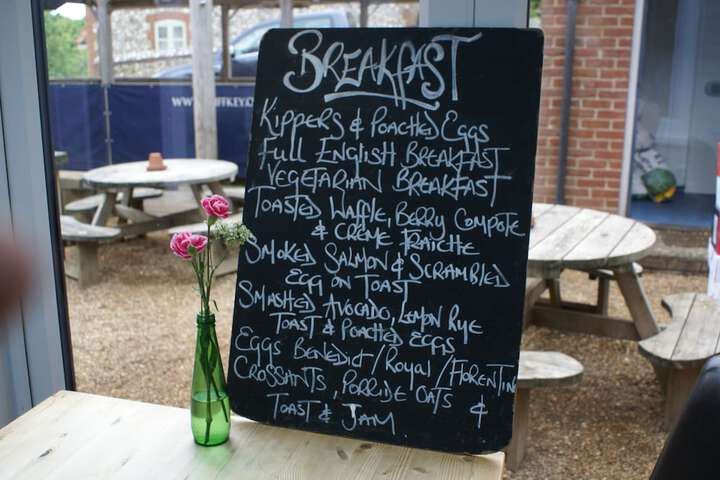 BREAKFAST
KIPPERS & POACHED EGGS
FULL ENGLISH BREAKFAST
VEGETARIAN BREAKFAST
TOASTED WAFFLE, BERRY COMPOTE
& CREME FRAICHE
SMOKED SALMON & SCRAMBLED
EGG ON TOAST
SMASHED AVOCADO, LEMON RYE
TOAST & POACHED EGGS
EGGS BENEDICT/ROYAL/FLORENTINE
CROSSANTS, PORRIDE OATS &
TOAST & JAM